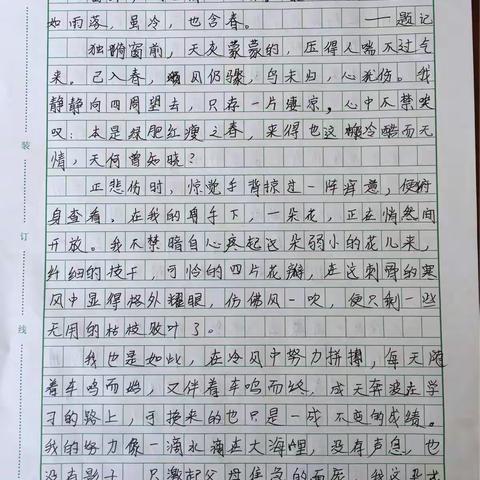 如雨落，虽冷，也含春。 ——题记
独踊窗前，天灰蒙蒙的，压得人喘不过气
来。已入春，风仍骤，鸟未归，心先伤。我
静静向四周望去，只存一片凄凉，心中不禁哭
叹：本是绿肥红瘦之春，来得也这样冷酷而无
情，天何曾知晓？
正悲伤时，惊觉手背掠过一阵浑意，便俯
身查看，在我的身手下，一朵花，正在悄然间
开放。我不禁暗自心疼起这朵弱小的花儿来，
纤细的枝干，可怜的四片花瓣，在这刺骨的寒
风中显得格外耀眼，仿佛风一吹，便只剩一些
无用的枯枝败叶了。
我也是如此，在冷风中努力拼搏，每天随
着车鸣而始，又伴着车鸣而终，成天奔波在学
习的路上，可换来的也只是一成不变的成绩。
我的努力像一滴水滴在大海哩，没有声息，也
没有影子，只激起父母焦急的面庞，我这
装
订
线